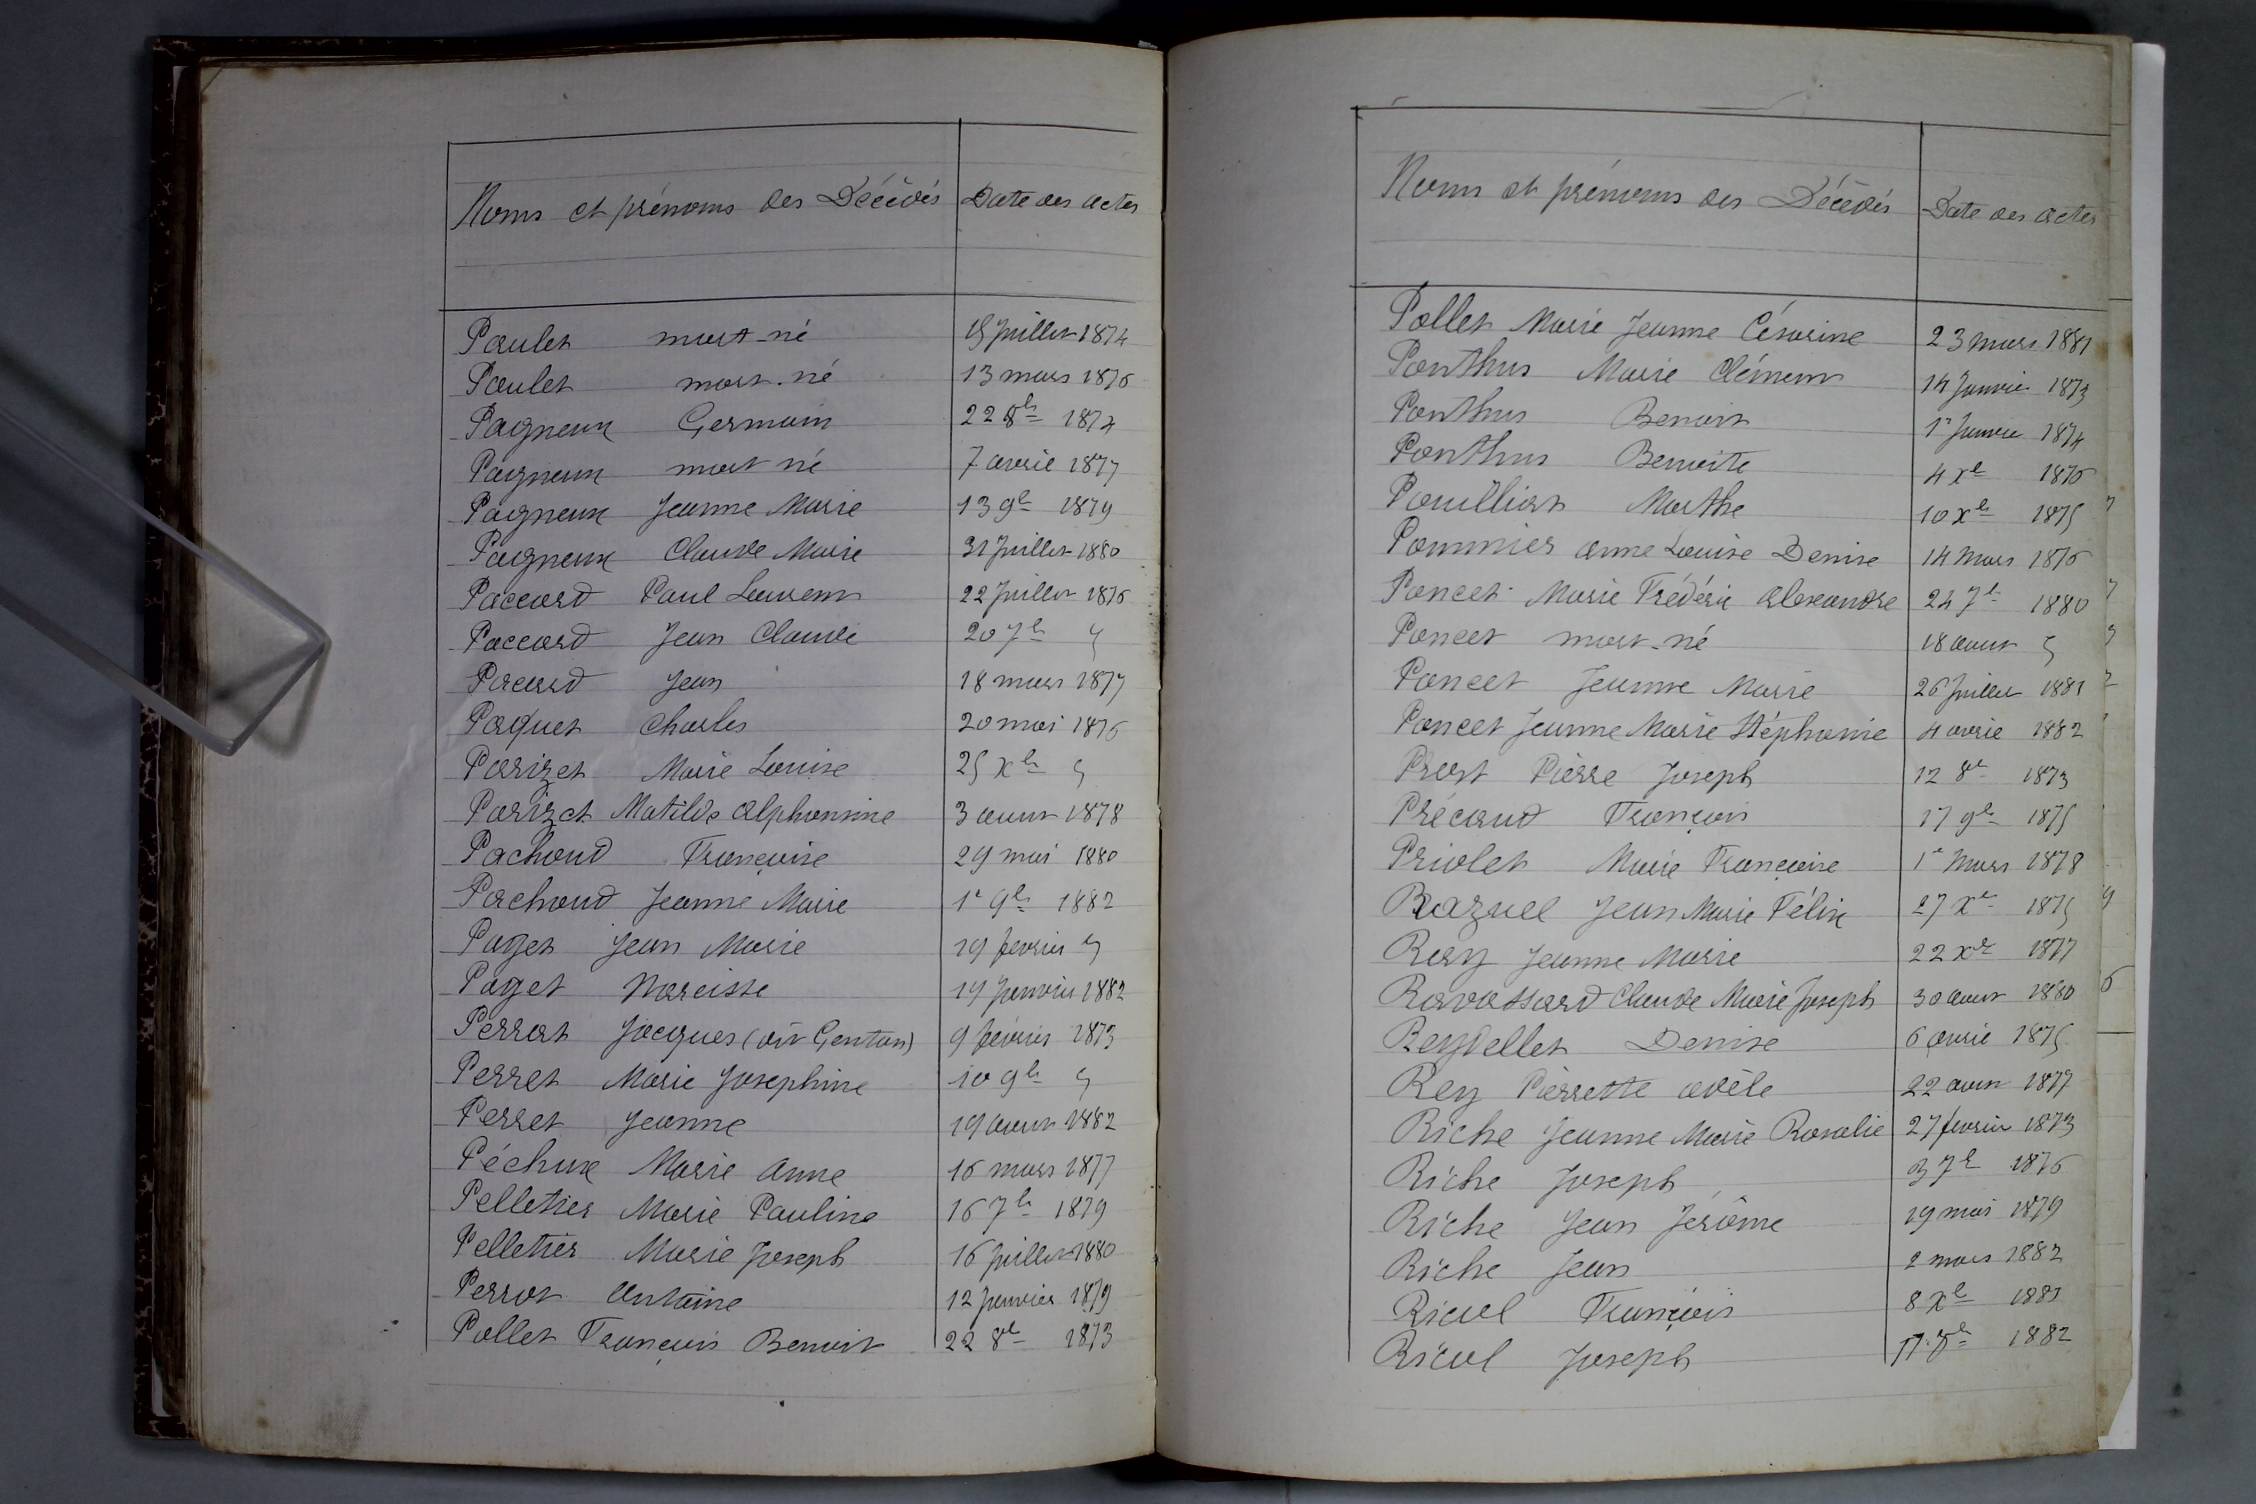 Noms et prénoms des Décédés Date des actes
Paulet mort-né 15 Juillet 1874
Paulet mort-né 13 mars 1876
Pagneux Germain 22 8b 1874
Pagneux mort né 7 avril 1877
Pagneux Jeanne Marie 13 9b 1879
Pagneux Claude Marie 31 Juillet 1880
Paccard Paul Laurent 22 Juillet 1876
Paccard Jean Claude 20 7b "
Pacard Jean 18 mars 1877
Paquet Charles 20 mai 1876
Parizet Marie Louise 25 xb "
Parizet Matilde Alphonsine 3 aout 1878
Pachoud Françoise 29 mai 1880
Pachoud Jeanne Marie 1r 9b 1882
Paget Jean Marie 19 fevrier "
Paget Narcisse 19 Janvier 1882
Perrat Jacques (dit Genton) 9 février 1873
Perret Marie Josephine 10 9b "
Perret Jeanne 19 aout 1882
Péchux Marie Anne 16 mars 1877
Pelletier Marie Pauline 16 7b 1879
Pelletier Marie Joseph 16 Juillet 1880
Perrot Antoine 12 Janvier 1879
Pollet François Benoit 22 8b 1873
Noms et prénoms des Décédés Date des actes
Pollet Marie Jeanne Césarine 23 mars 1881
Ponthus Marie Clément 14 Janvier 1873
Ponthus Benoit 1r Janvier 1874
Ponthus Benoite 4 xb 1876
Pouilliat Marthe 10 xb 1875
Pommier Anne Louise Denise 14 Mars 1876
Poncet Marie Frédéric Alexandre 24 7b 1880
Poncet mort-né 18 aout "
Poncet Jeanne Marie 26 Juillet 1881
Poncet Jeanne Marie Stéphanie 4 avril 1882
Prost Pierre Joseph 12 8b 1873
Précaud François 17 9b 1875
Priolet Marie Françoise 1r Mars 1878
Razuel Jean Marie Félix 27 xb 1875
Rery Jeanne Marie 22 xb 1877
Ravassard Claude Marie Joseph 30 aout 1880
Reydellet Denise 6 avril 1875
Rey Pierrette Adèle 22 aout 1877
Riche Jeanne Marie Rosalie 27 fevrier 1873
Riche Joseph 3 7b 1876
Riche Jean Jérôme 29 mai 1879
Riche Jean 2 mars 1882
Ricol François 8 xb 1881
Ricol Joseph 1882